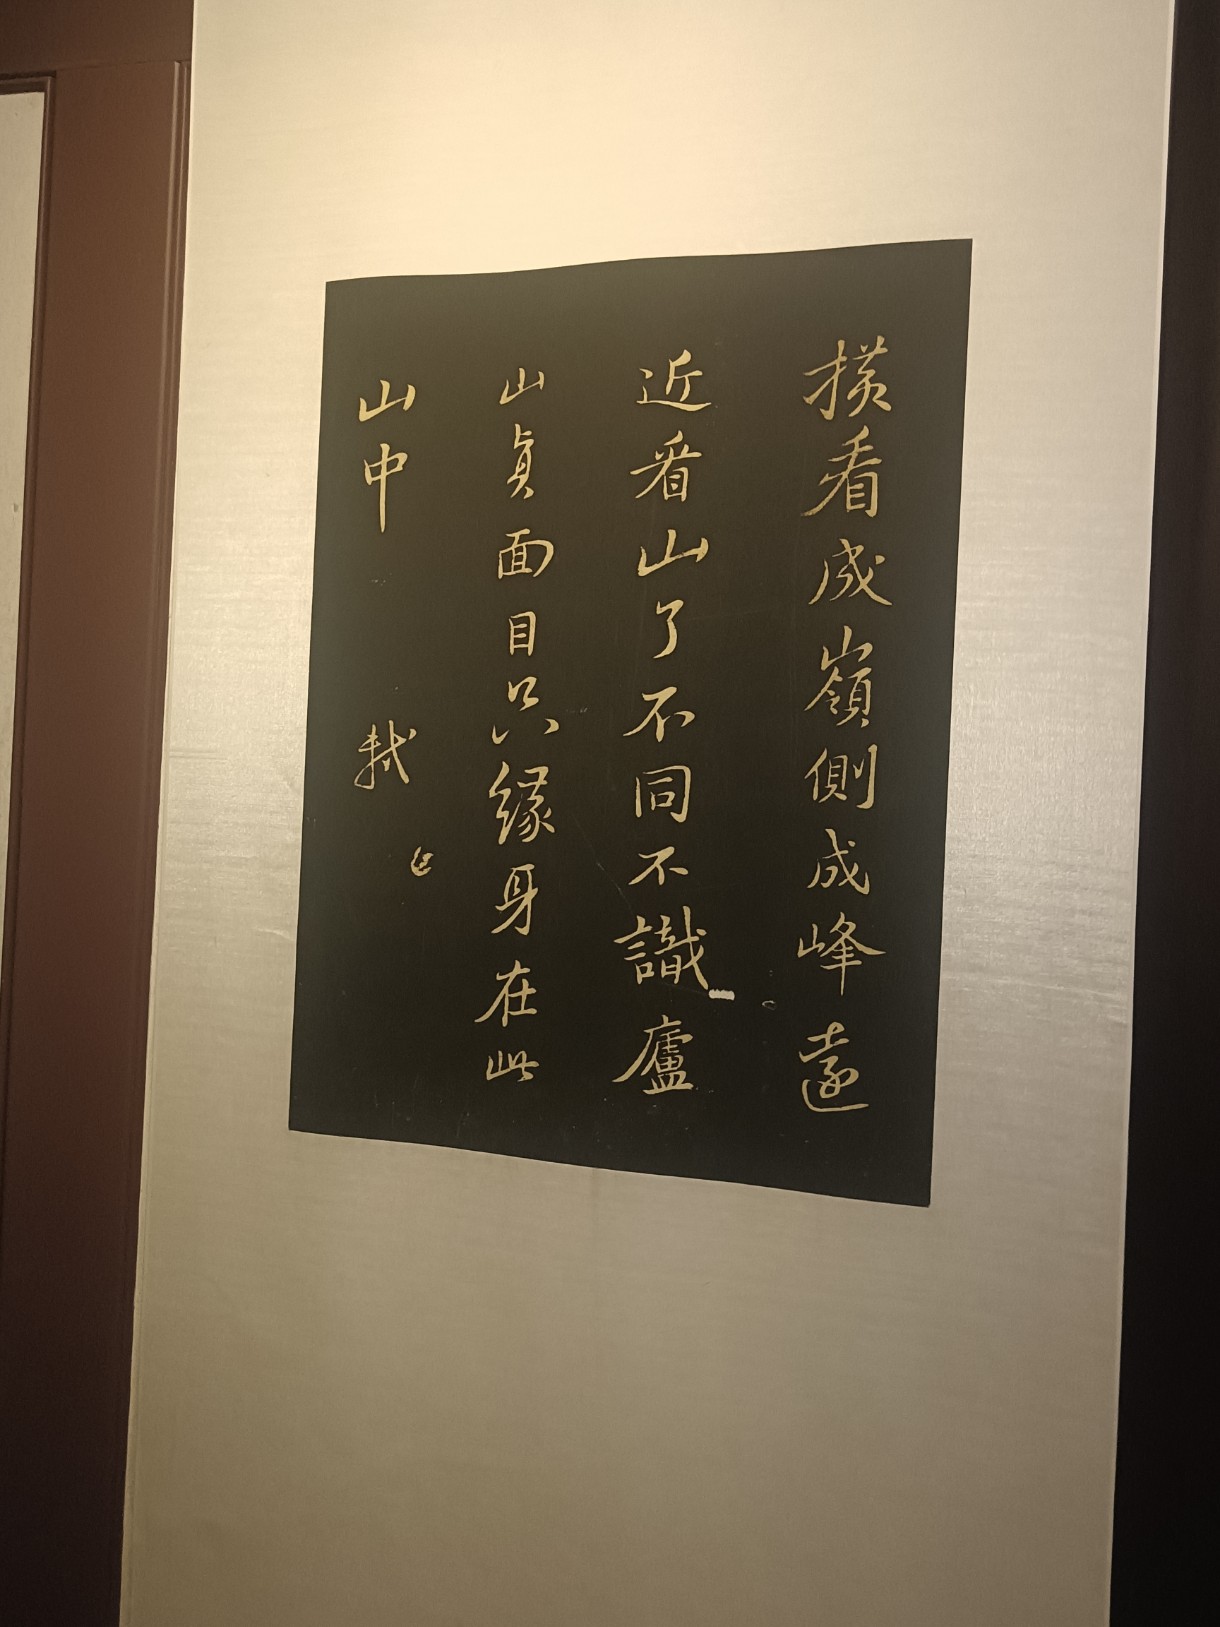 横看成嶺側成峰遠
近看山了不同不識廬
山真面目只緣身在此
山中 軾